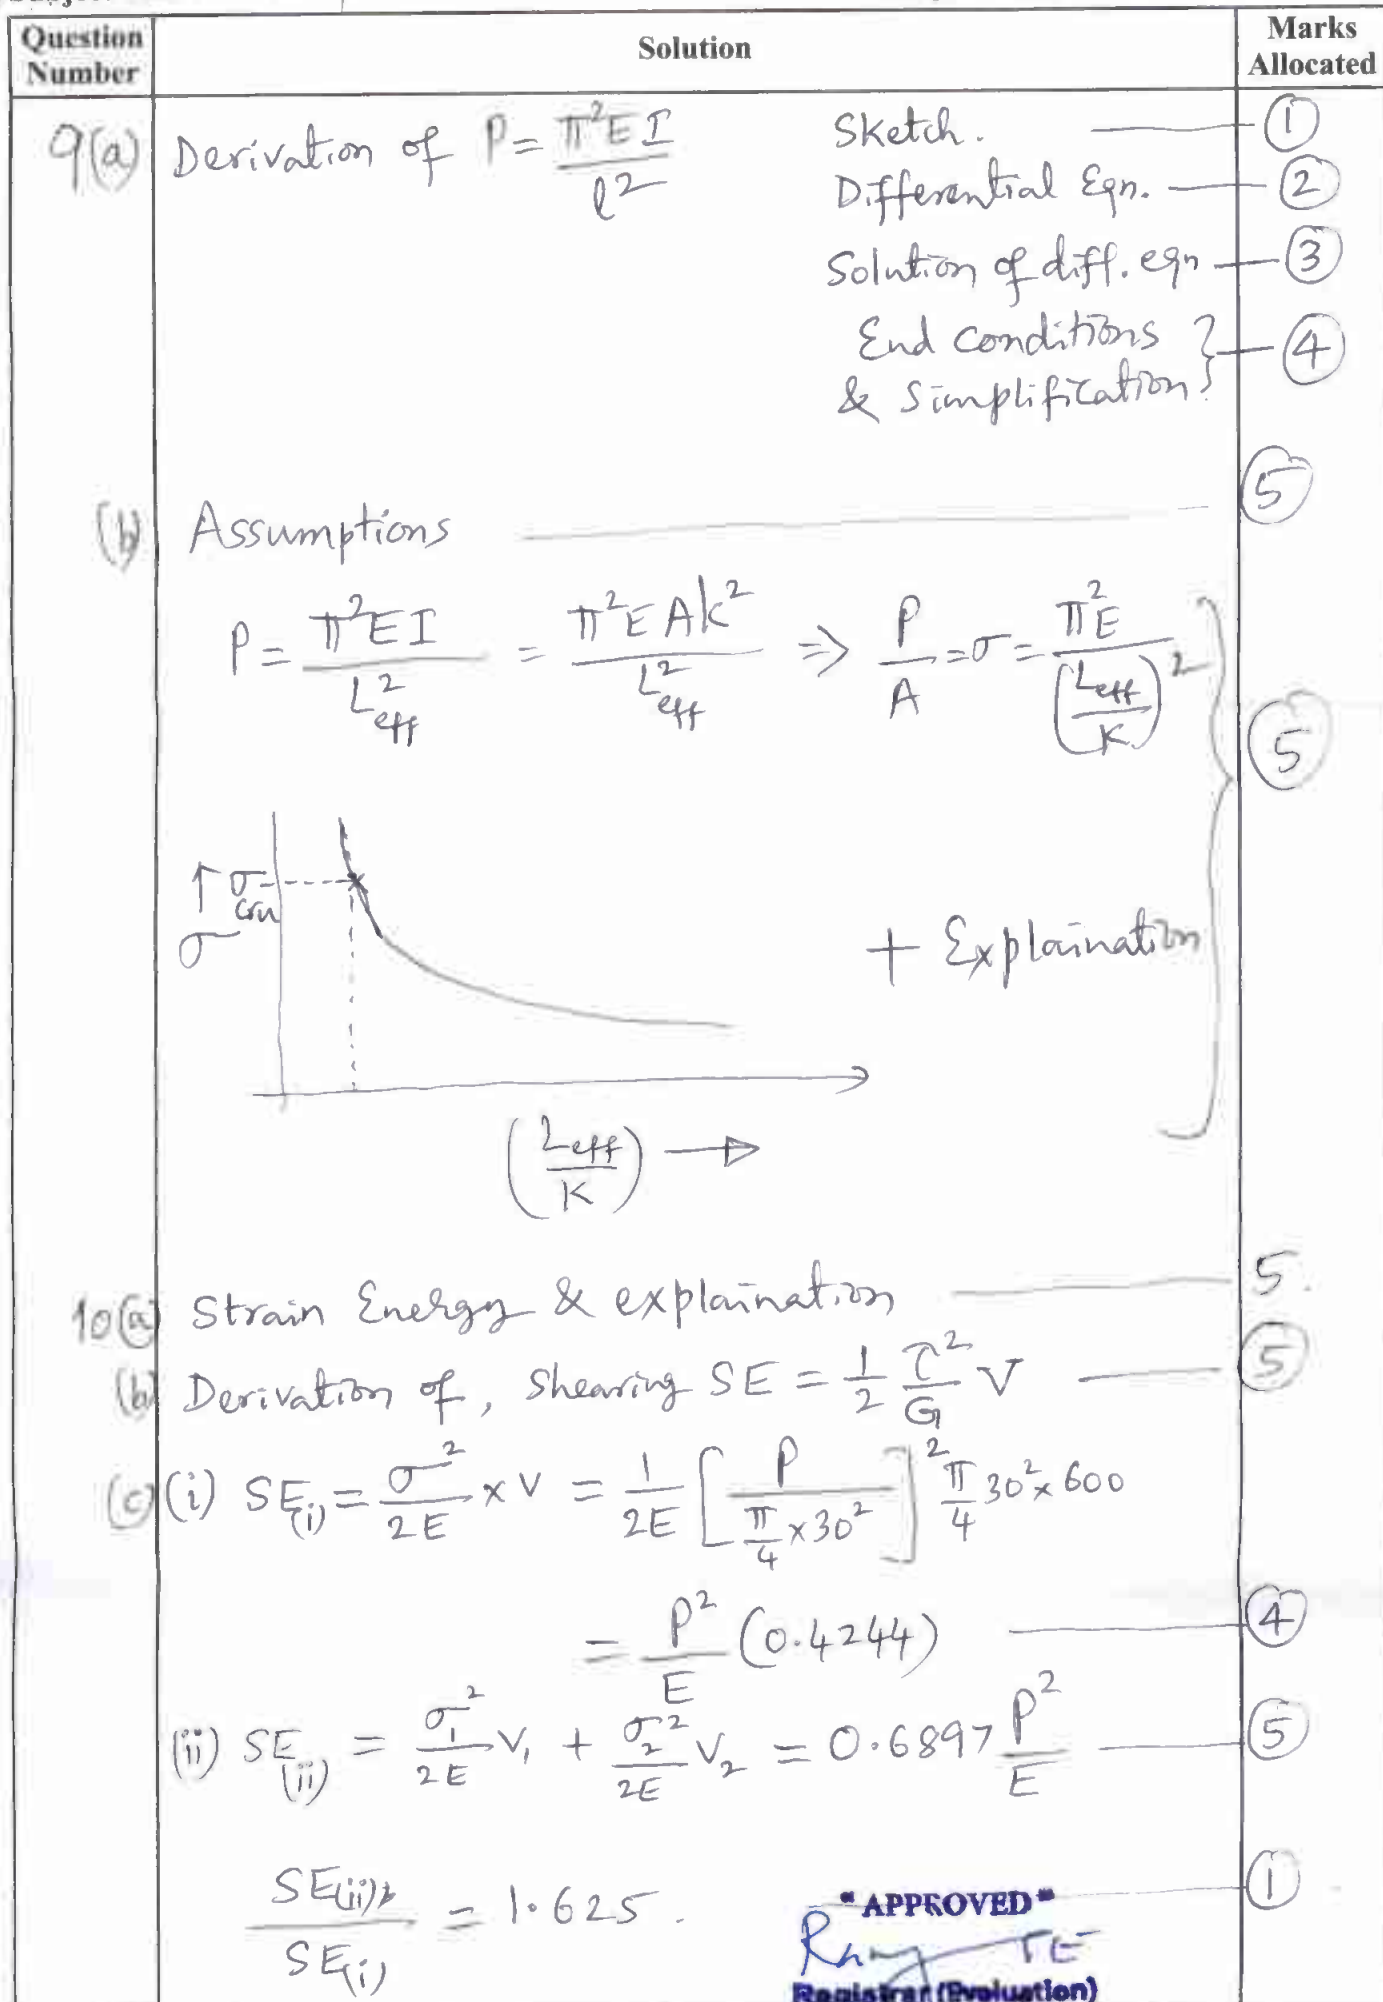 Question Number Solution Marks Allocated
9(a) Derivation of P = π²EI / l² Sketch. — 1
Differential Eqn. — 2
Solution of diff. eqn — 3
End conditions & Simplification } — 4
(b) Assumptions — 5
P = π²EI / L²eff = π²EAk² / L²eff ⇒ P/A = σ = π²E / (Leff/K)² } 5
↑ σ σcru
+ Explaination
(Leff/K) →
10(a) Strain Energy & explaination — 5.
(b) Derivation of, Shearing SE = 1/2 τ²/G V — 5
(c) (i) SE(i) = σ²/2E × V = 1/2E [P / (π/4 × 30²)]² π/4 30² × 600
= P²/E (0.4244) — 4
(ii) SE(ii) = σ₁²/2E V₁ + σ₂²/2E V₂ = 0.6897 P²/E — 5
SE(ii) / SE(i) = 1.625. 1
"APPROVED"
Registrar (Evaluation)